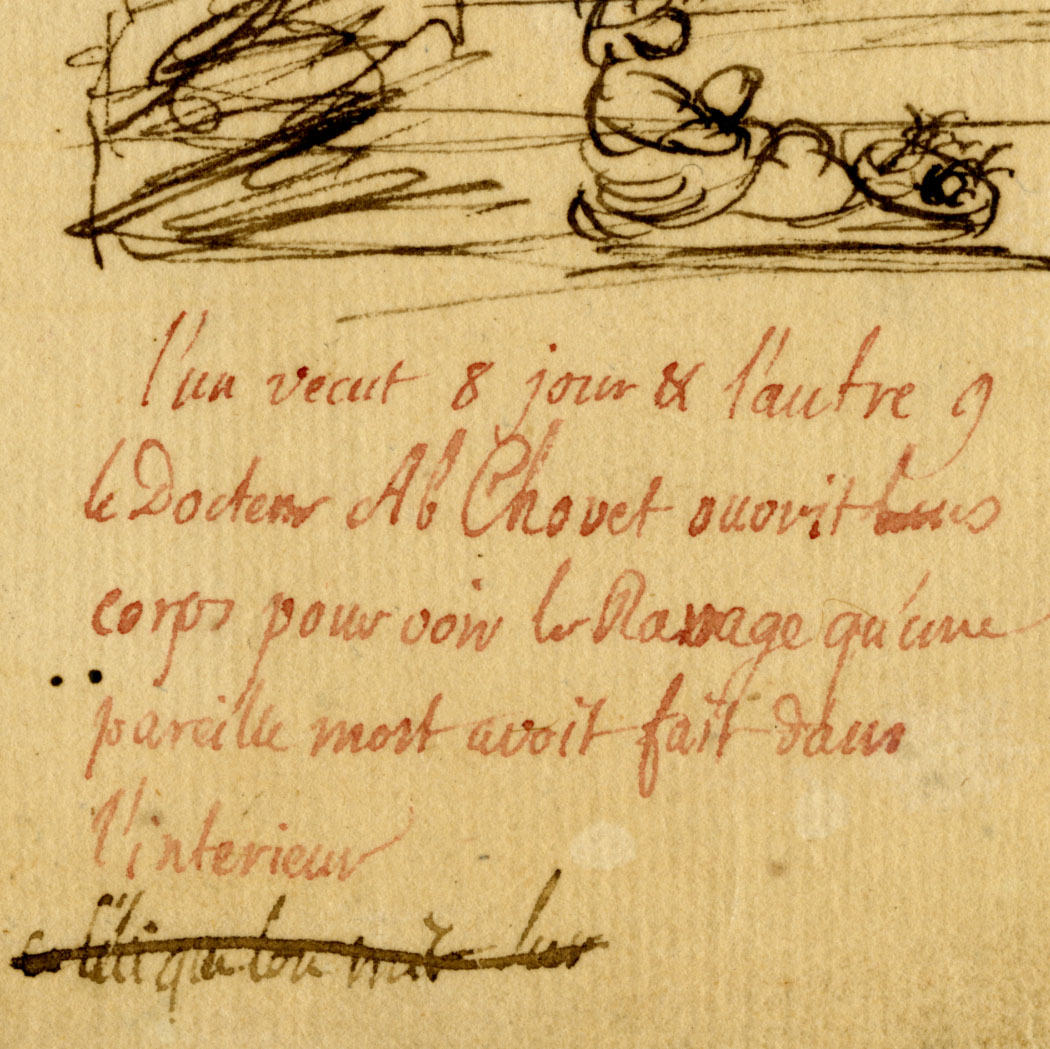 l'un vecut 8 jour & l'autre 9
le Docteur Ab Chovet ouvrit leurs
corps pour voir le Ravage qu'une
pareille mort avoit fait dans
l'interieur
que l'on mit